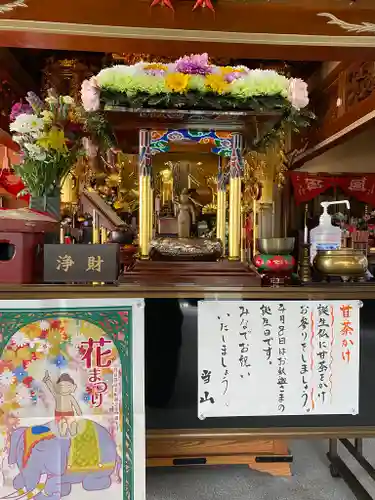 浄財
花まつり
甘茶かけ
誕生仏に甘茶をかけ
お参りをしましょう。
4月8日はお釈迦さまの
誕生日です。
みなでお祝い
いたしましょう。
当山